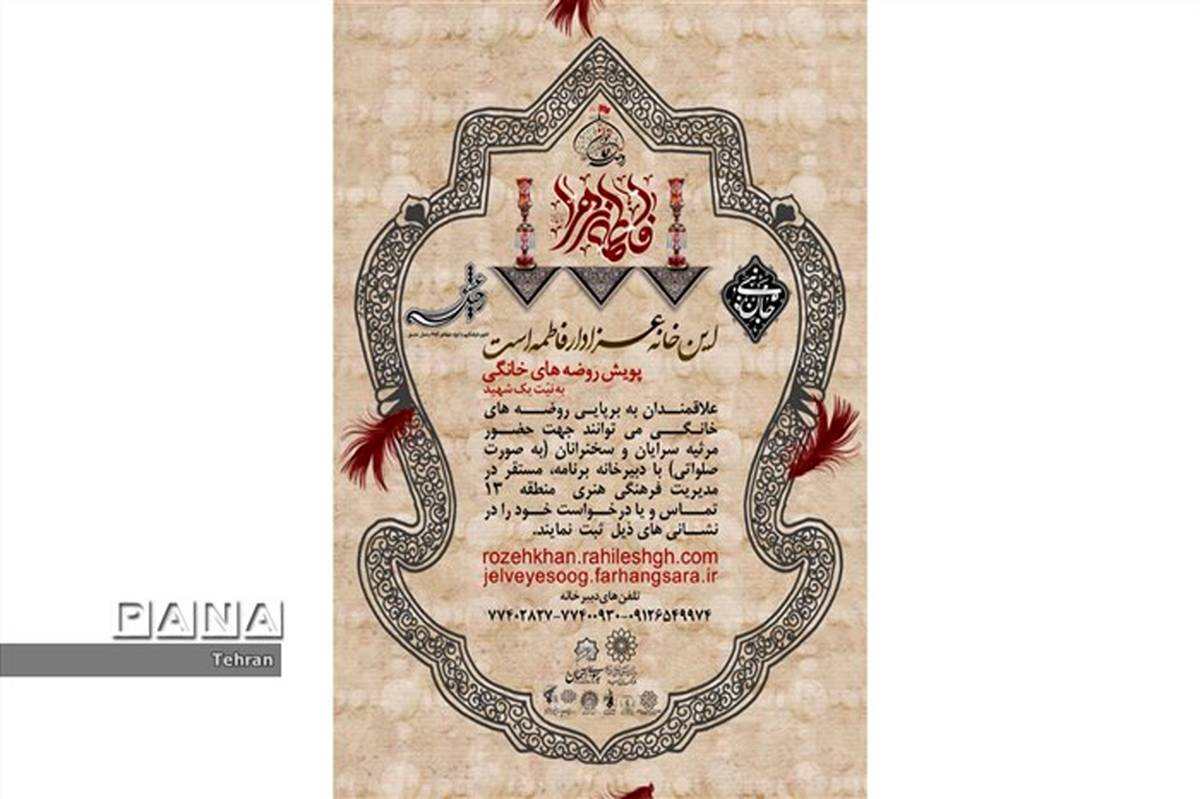 فاطمه زهرا
رحیل عشق
این خانه عزادار فاطمه است
پویش روضه های خانگی
به نیّت یک شهید
علاقمندان به برپایی روضـــه های
خانگـی می توانند جهت حضـور
مرثیه سرایان و سخنرانان (به صورت
صلواتی) با دبیرخانه برنامه، مستقر در
مدیریت فرهنگی هنری منطقه ۱۳
تمـاس و یا درخـواست خـود را در
نشـانی های ذیل ثبت نمایند.
rozehkhan.rahileshgh.com
jelveyesoog.farhangsara.ir
تلفن های دبیرخانه
۷۷۴۰۲۸۲۷-۷۷۴۰۰۹۳۰-۰۹۱۲۶۵۴۹۹۷۴
PANA
Tehran